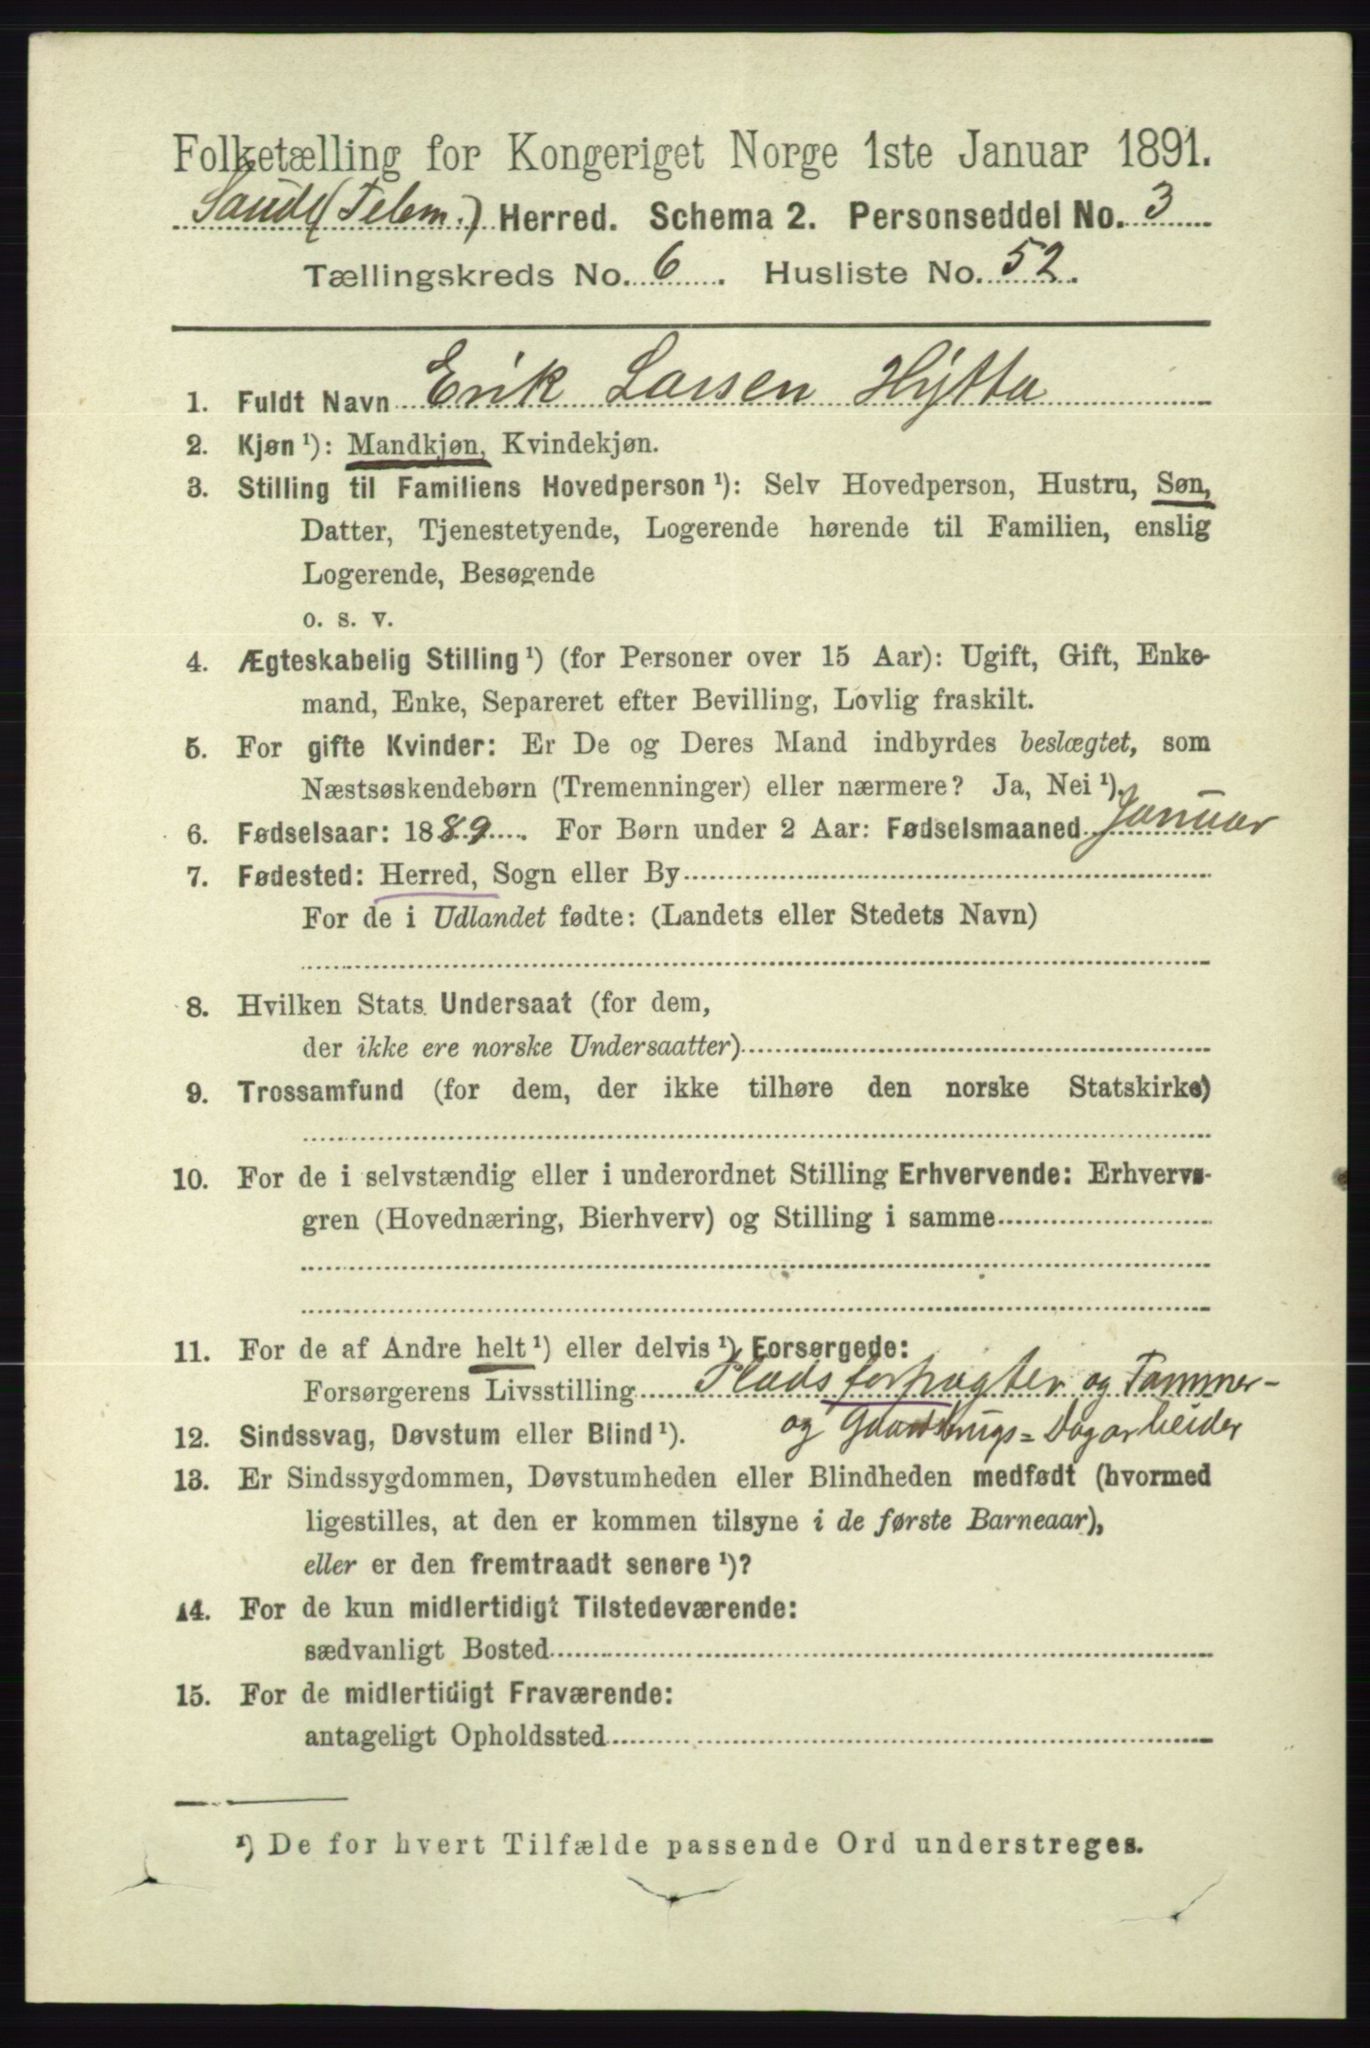 Folketælling for Kongeriget Norge 1ste Januar 1891.
Saude (Telem.) Herred. Schema 2. Personseddel No. 3
Tællingskreds No. 6. Husliste No. 52.
1. Fuldt Navn Erik Larsen Hytta
2. Kjøn ¹): Mandkjøn, Kvindekjøn.
3. Stilling til Familiens Hovedperson ¹): Selv Hovedperson, Hustru, Søn,
Datter, Tjenestetyende, Logerende hørende til Familien, enslig
Logerende, Besøgende
o. s. v.
4. Ægteskabelig Stilling ¹) (for Personer over 15 Aar): Ugift, Gift, Enke-
mand, Enke, Separeret efter Bevilling, Lovlig fraskilt.
5. For gifte Kvinder: Er De og Deres Mand indbyrdes beslægtet, som
Næstsøskendebørn (Tremenninger) eller nærmere? Ja, Nei ¹).
6. Fødselsaar: 1889. For Børn under 2 Aar: Fødselsmaaned Januar
7. Fødested: Herred, Sogn eller By
For de i Udlandet fødte: (Landets eller Stedets Navn)
8. Hvilken Stats Undersaat (for dem,
der ikke ere norske Undersaatter)
9. Trossamfund (for dem, der ikke tilhøre den norske Statskirke)
10. For de i selvstændig eller i underordnet Stilling Erhvervende: Erhvervs-
gren (Hovednæring, Bierhverv) og Stilling i samme
11. For de af Andre helt ¹) eller delvis ¹) Forsørgede:
Forsørgerens Livsstilling Pladsforpagter og Tømmer-
og Gaardsbrugs=Dagarbeider
12. Sindssvag, Døvstum eller Blind ¹).
13. Er Sindssygdommen, Døvstumheden eller Blindheden medfødt (hvormed
ligestilles, at den er kommen tilsyne i de første Barneaar),
eller er den fremtraadt senere ¹)?
14. For de kun midlertidigt Tilstedeværende:
sædvanligt Bosted
15. For de midlertidigt Fraværende:
antageligt Opholdssted
¹) De for hvert Tilfælde passende Ord understreges.